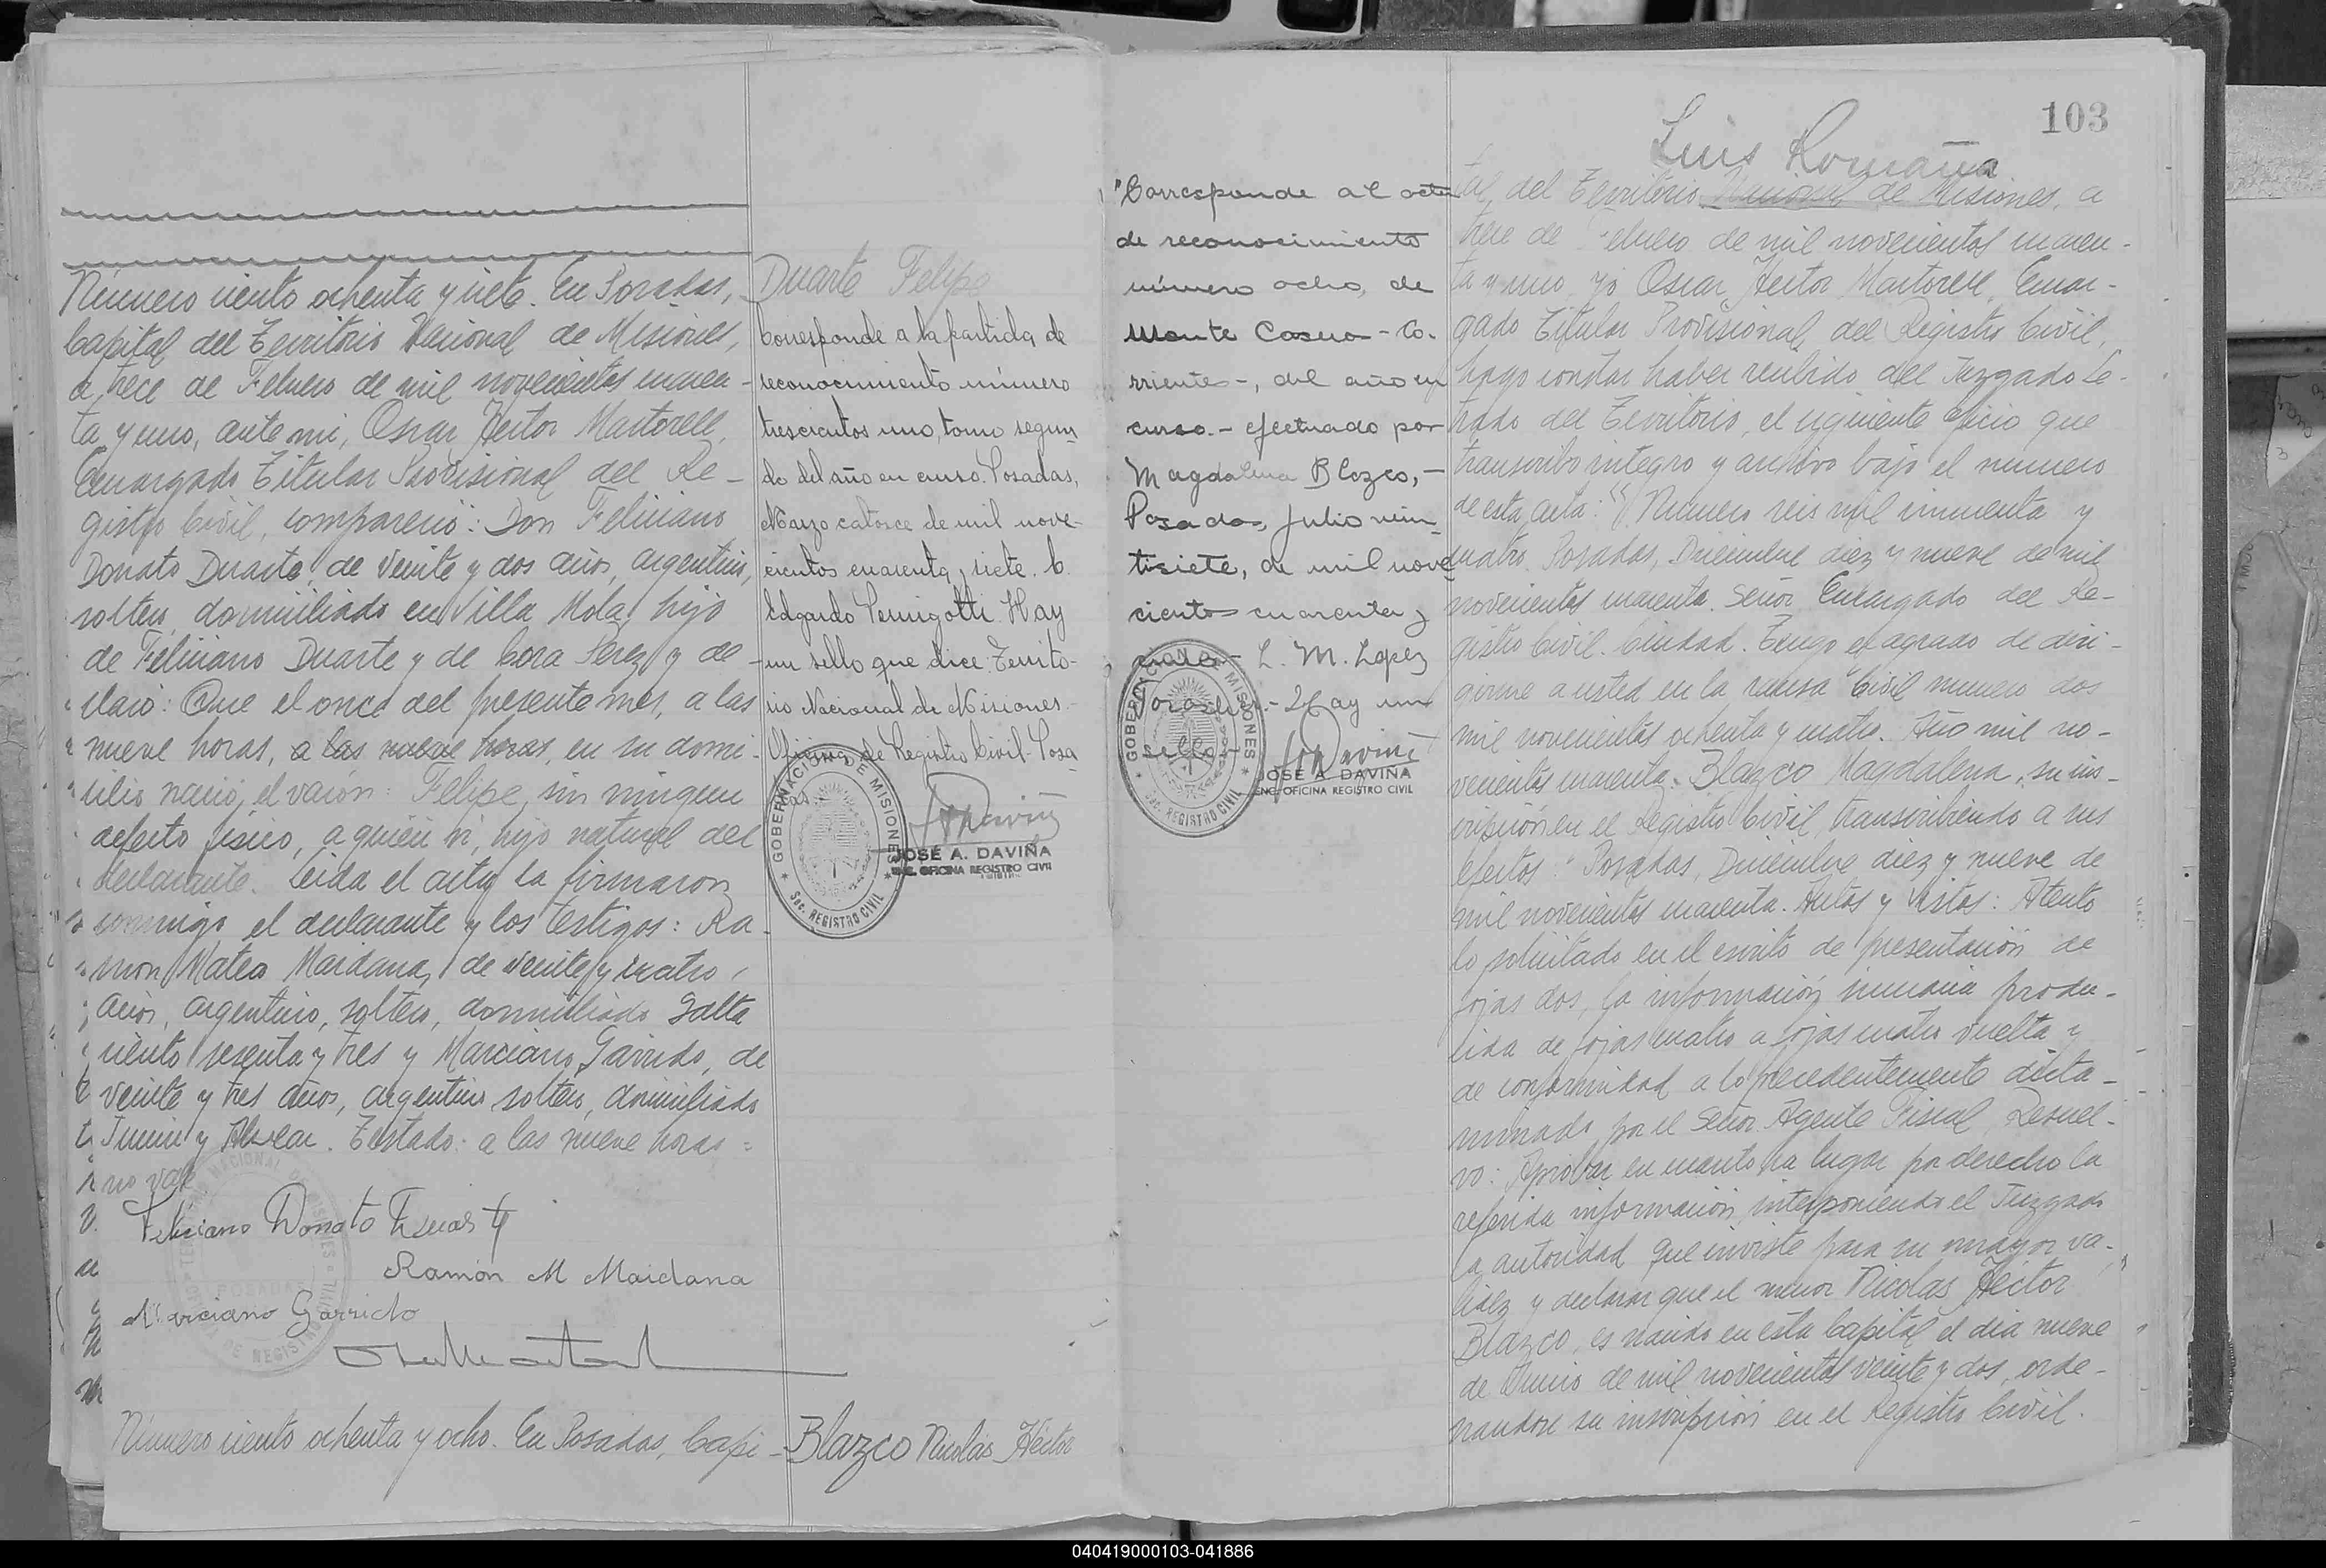 Número ciento ochenta y siete. En Posadas,
Capital del Territorio Nacional de Misiones,
a trece de Febrero de mil novecientos cuaren-
ta y uno, ante mí, Oscar Hector Martorell,
Encargado Titular Provisional del Re-
gistro Civil, compareció: Don Feliciano
Donato Duarte, de veinte y dos años, argentino,
soltero, domiciliado en Villa Mola, hijo
de Feliciano Duarte y de Cora Perez y de-
claró: Que el once del presente mes, a las
nueve horas, a las nueve horas, en su domi-
cilio nació, el varón: Felipe, sin ningun
defecto físico, a quién vi, hijo natural del
declarante. Leida el acta, la firmaron
conmigo el declarante y los testigos: Ra-
mon Mateo Maidana, de veinte y cuatro
años, argentino, soltero, domiciliado Salta
ciento sesenta y tres y Marciano Garrido, de
veinte y tres años, argentino, soltero, domiciliado
Junin y Alvear. Testado: a las nueve horas =
no vale
Feliciano Donato
Ramón M Maidana
Marciano Garrido
Número ciento ochenta y ocho. En Posadas, Capi-
Duarte Felipe
Corresponde a la partida de
reconocimiento número
trescientos uno, tomo segun
do del año en curso. Posadas,
Marzo catorce de mil nove-
cientos cuarenta y siete. C.
Edgardo Pernigotti. Hay
un sello que dice: Territo-
rio Nacional de Misiones-
Oficina de Registro Civil-Posa-
das-
GOBERNACION DE MISIONES
Sec. REGISTRO CIVIL
JOSÉ A. DAVIÑA
ENC. OFICINA REGISTRO CIVIL
Blazco Nicolás Héctor
"Corresponde al acta
de reconocimiento
número ocho, de
Monte Casero - Co-
rrientes -, del año en
curso. - efectuado por
Magdalena Blazco, -
Posadas, Julio vein
tisiete, de mil nove
cientos cuarenta y
L. M. Lopez
- Hay un
sello -
GOBERNACION DE MISIONES
Sec. REGISTRO CIVIL
JOSÉ A. DAVIÑA
ENC. OFICINA REGISTRO CIVIL
103
Luis Romaña
tal, del Territorio Nacional de Misiones, a
trece de Febrero de mil novecientos cuaren-
ta y uno, yo Oscar Hector Martorell, Encar-
gado Titular Provisional, del Registro Civil,
hago constar haber recibido del Juzgado Le-
trado del Territorio, el siguiente oficio que
transcribo integro y archivo bajo el número
de esta acta: "Número seis mil cincuenta y
cuatro. Posadas, Diciembre diez y nueve de mil
novecientos cuarenta. Señor Encargado del Re-
gistro Civil. Ciudad. Tengo el agrado de diri-
girme a usted en la causa Civil número dos
mil novecientos ochenta y cuatro. Año mil no-
vecientos cuarenta. Blazco Magdalena, su ins-
cripción en el Registro Civil, transcribiendo a sus
efectos: "Posadas, Diciembre diez y nueve de
mil novecientos cuarenta. Autos y Vistos: Atento
lo solicitado en el escrito de presentación de
fojas dos, la información sumaria produ-
cida de fojas cuatro a fojas cuatro vuelta y
de conformidad a lo precedentemente dicta-
minado por el Señor Agente Fiscal, Resuel-
vo: Aprobar en cuanto ha lugar por derecho la
referida información, interponiendo el Juzgado
la autoridad que inviste para su mayor va-
lidez y declarar que el menor Nicolas Héctor
Blazco, es nacido en esta Capital el día nueve
de Junio de mil novecientos veinte y dos, orde-
nandose su inscripción en el Registro Civil.
040419000103-041886